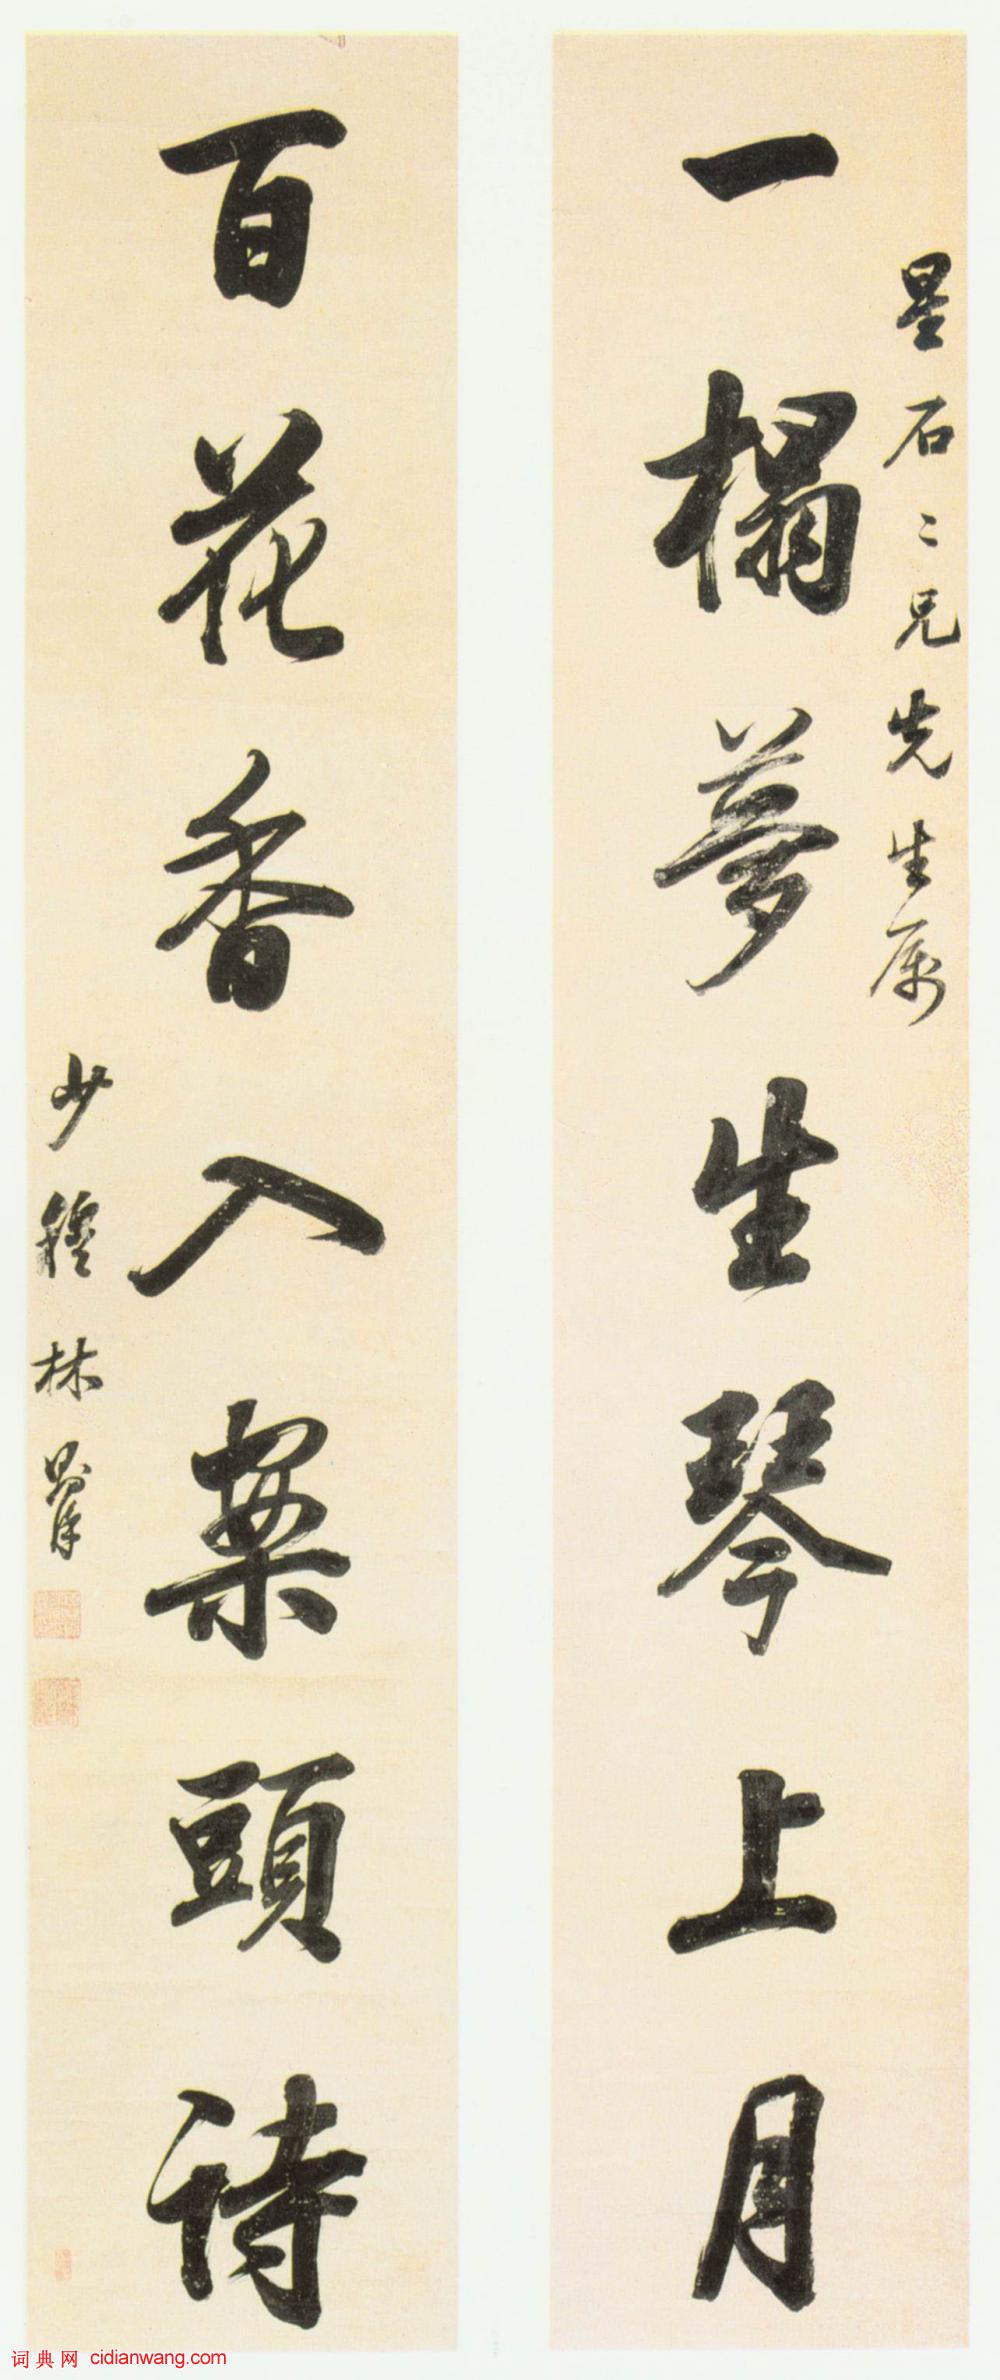 星石二兄先生属
一榻夢生琴上月
百花香入案頭詩
少穆林則徐
词典网 cidianwang.com